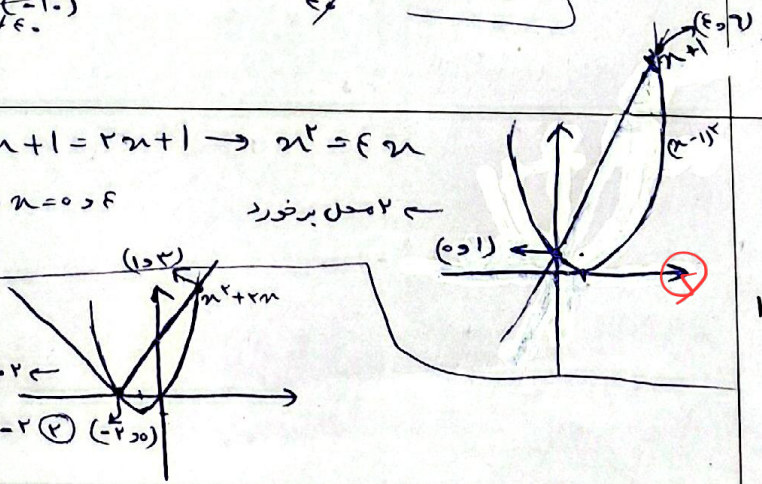 (-۱۰)
(۴ و ۹)
x+1
x+1 = ۲x+1 → x^۲ = ۴x
(x-1)^۲
x = ۰ و ۴
← ۲ محل برخورد
(۰ و ۱)
(۱ و ۳)
x^۲+۲x
←
-۲ ② (-۲ و ۰)